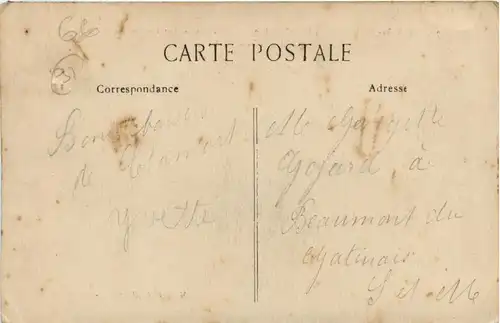 66
CARTE POSTALE
Correspondance
Adresse
Bons baisers
de Clamart
Yvette
Mlle Georgette
Gojard à
Beaumont du
Gatinais
S et M